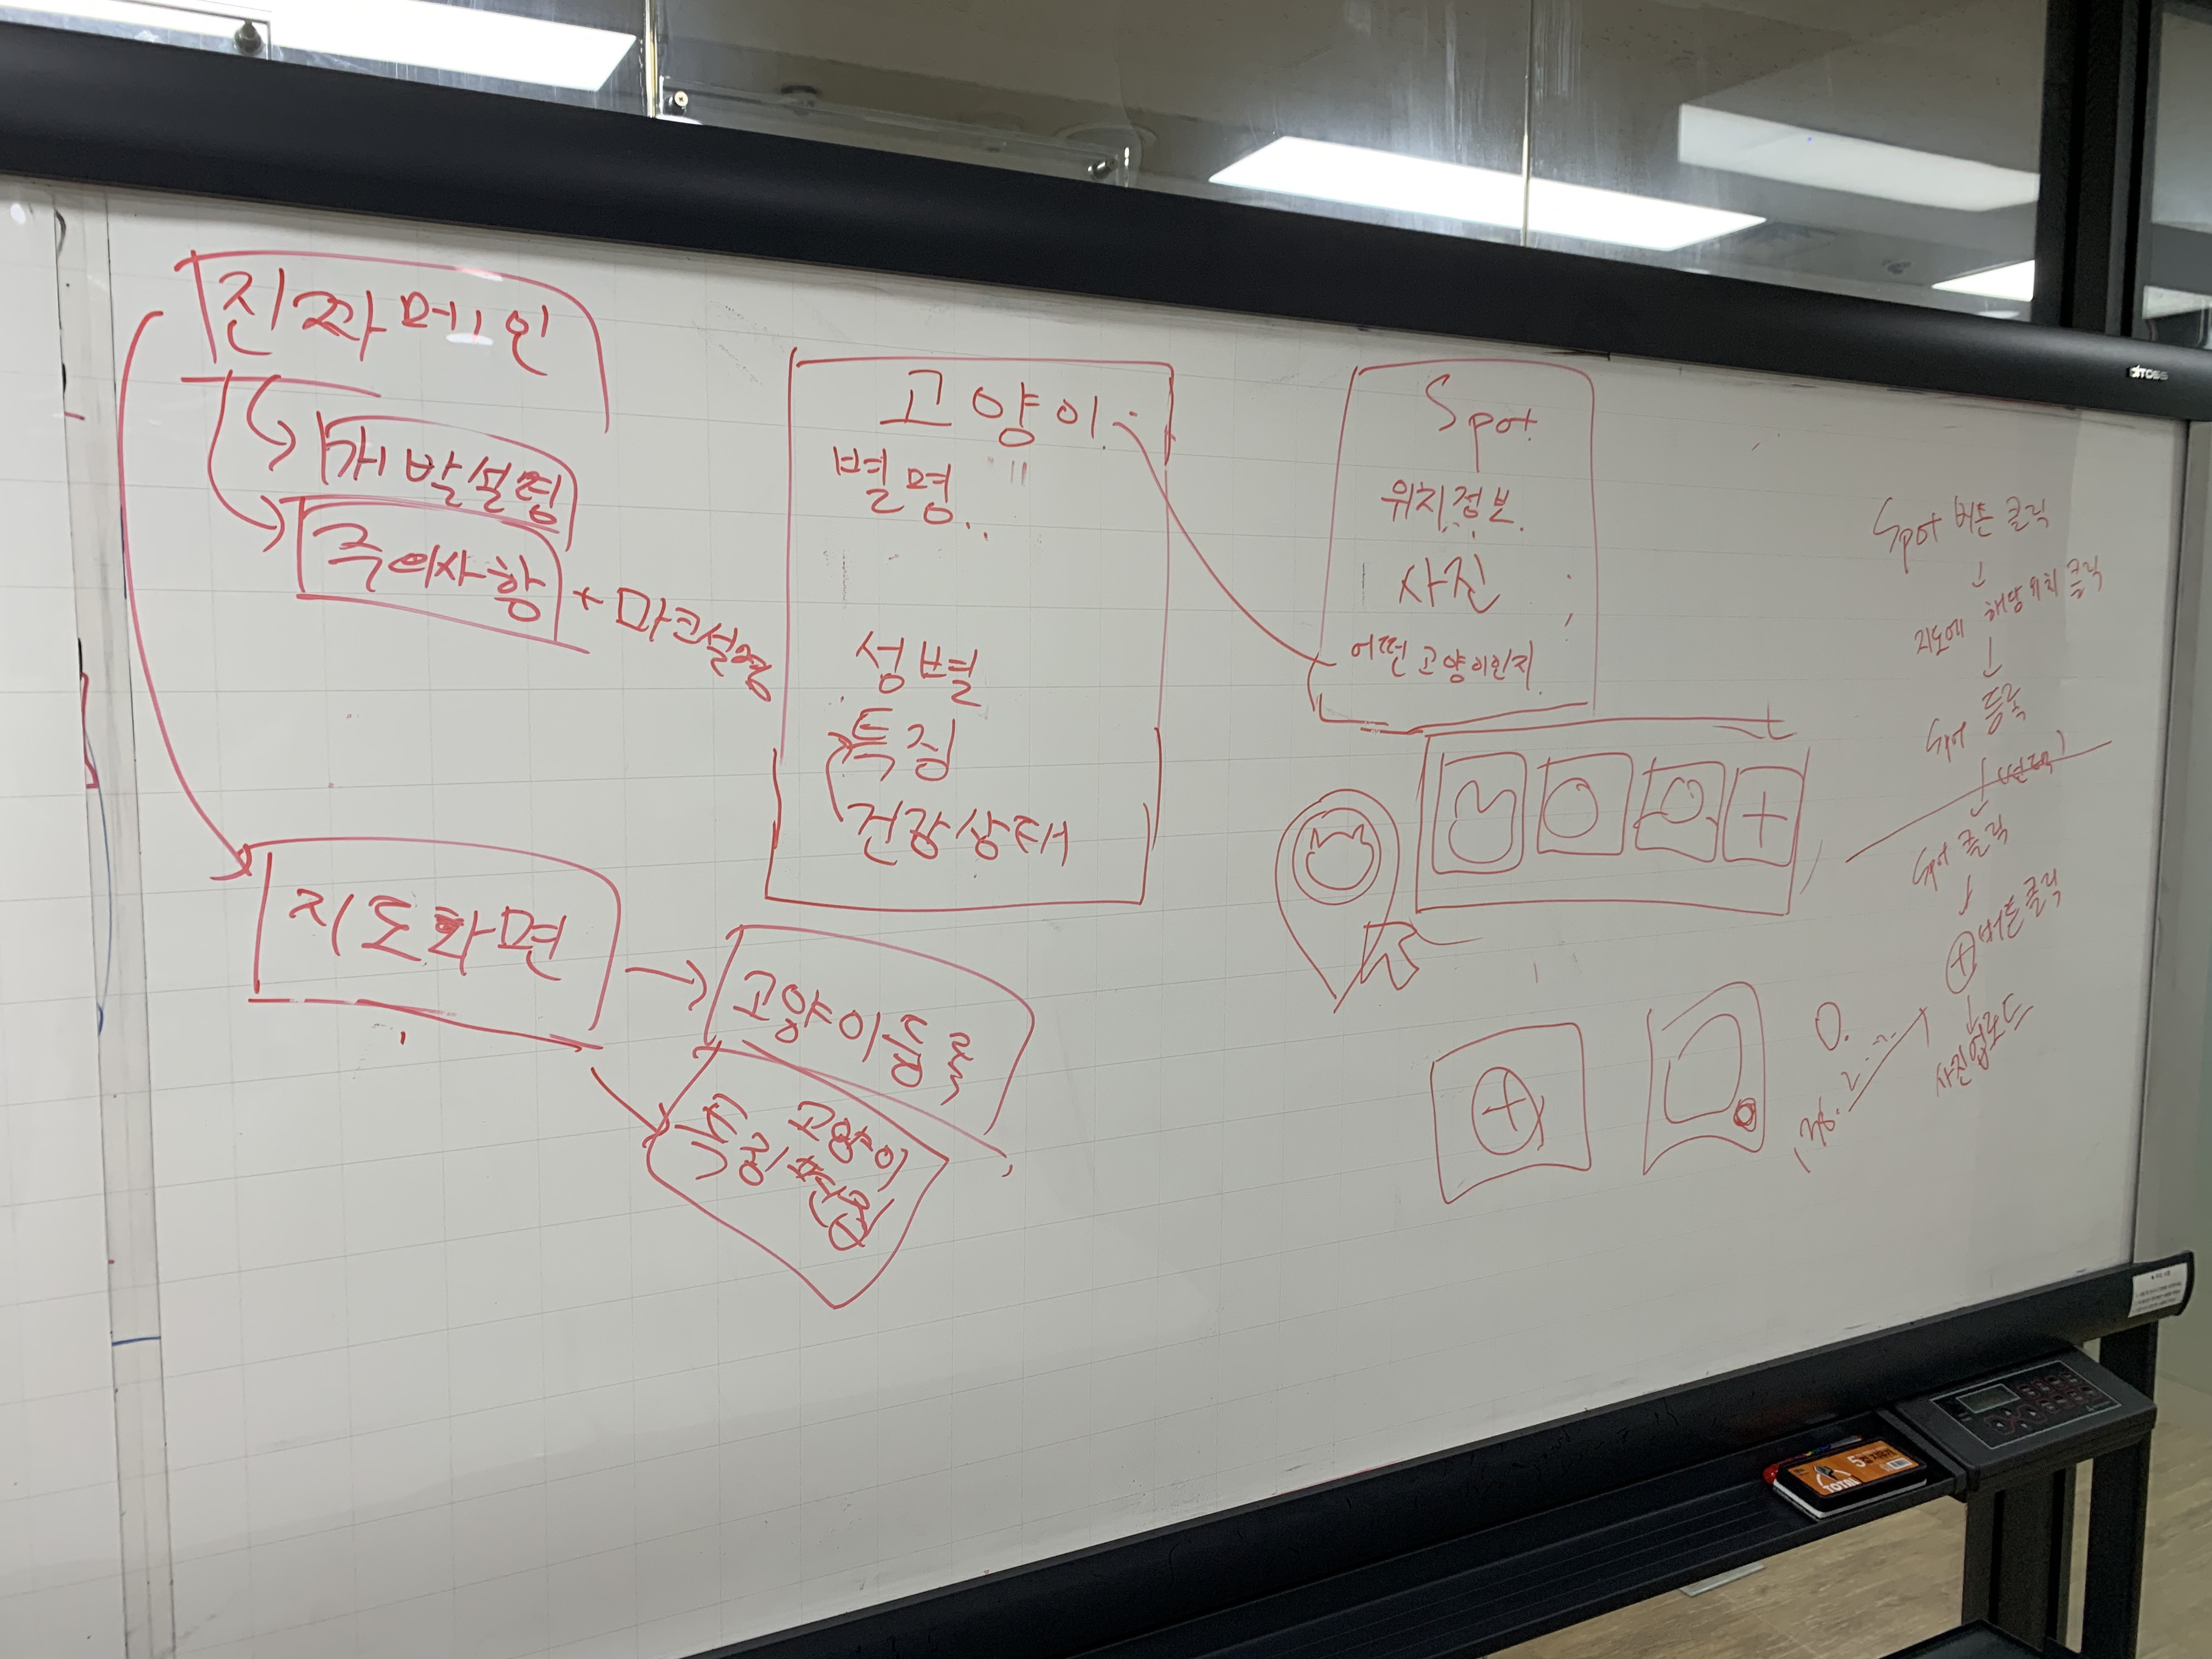 진짜메인
개발설명
주의사항 + 마크설명
지도화면
고양이등록
고양이
특징
고양이
별명
성별
특징
건강상태
Spot
위치정보
사진
어떤 고양이인지
+
+
Spot 버튼 클릭
지도에 해당위치 클릭
Spot 등록
Spot 클릭
+ 버튼클릭
사진업로드
TOMBI